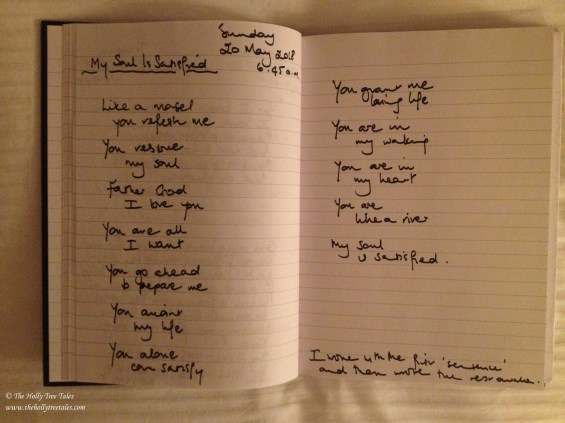 Sunday
20 May 2018
6.45 a.m.
My Soul Is Satisfied
Like a
you refresh me
You restore
my soul
Father God
I love you
You are all
I want
You go ahead
to prepare me
You anoint
my life
You alone
can satisfy
You grant me
life
You are in
my walking
You are in
my heart
You are
like a river
My soul
is satisfied.
I woke with the first 'sentence'
and then wrote the rest awake.
© The Holly Tree Tales
www.thehollytreetales.com